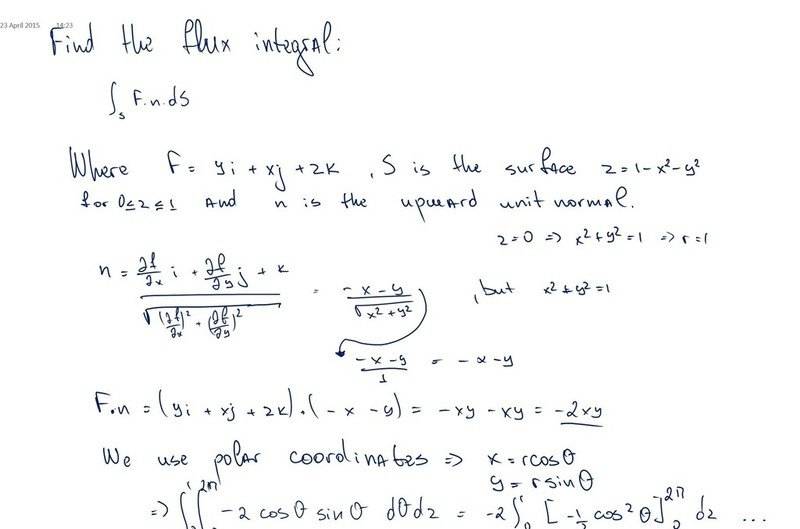 23 April 2015 14:23
Find the flux integral:
∫_S F.n.dS
Where F = yi + xj + zk , S is the surface z = 1 - x² - y²
for 0 ≤ z ≤ 1 and n is the upward unit normal.
z = 0 => x² + y² = 1 => r = 1
n = (∂f/∂x i + ∂f/∂y j + k) / √((∂f/∂x)² + (∂f/∂y)²) = (-x - y) / √(x² + y²) , but x² + y² = 1
(-x - y) / 1 = -x - y
F.n = (yi + xj + zk).(-x - y) = -xy - xy = -2xy
We use polar coordinates => x = r cos θ
y = r sin θ
=> ∫ ∫ -2 cos θ sin θ dθ dz = -2 ∫ [-½ cos² θ]₀^2π dz ...